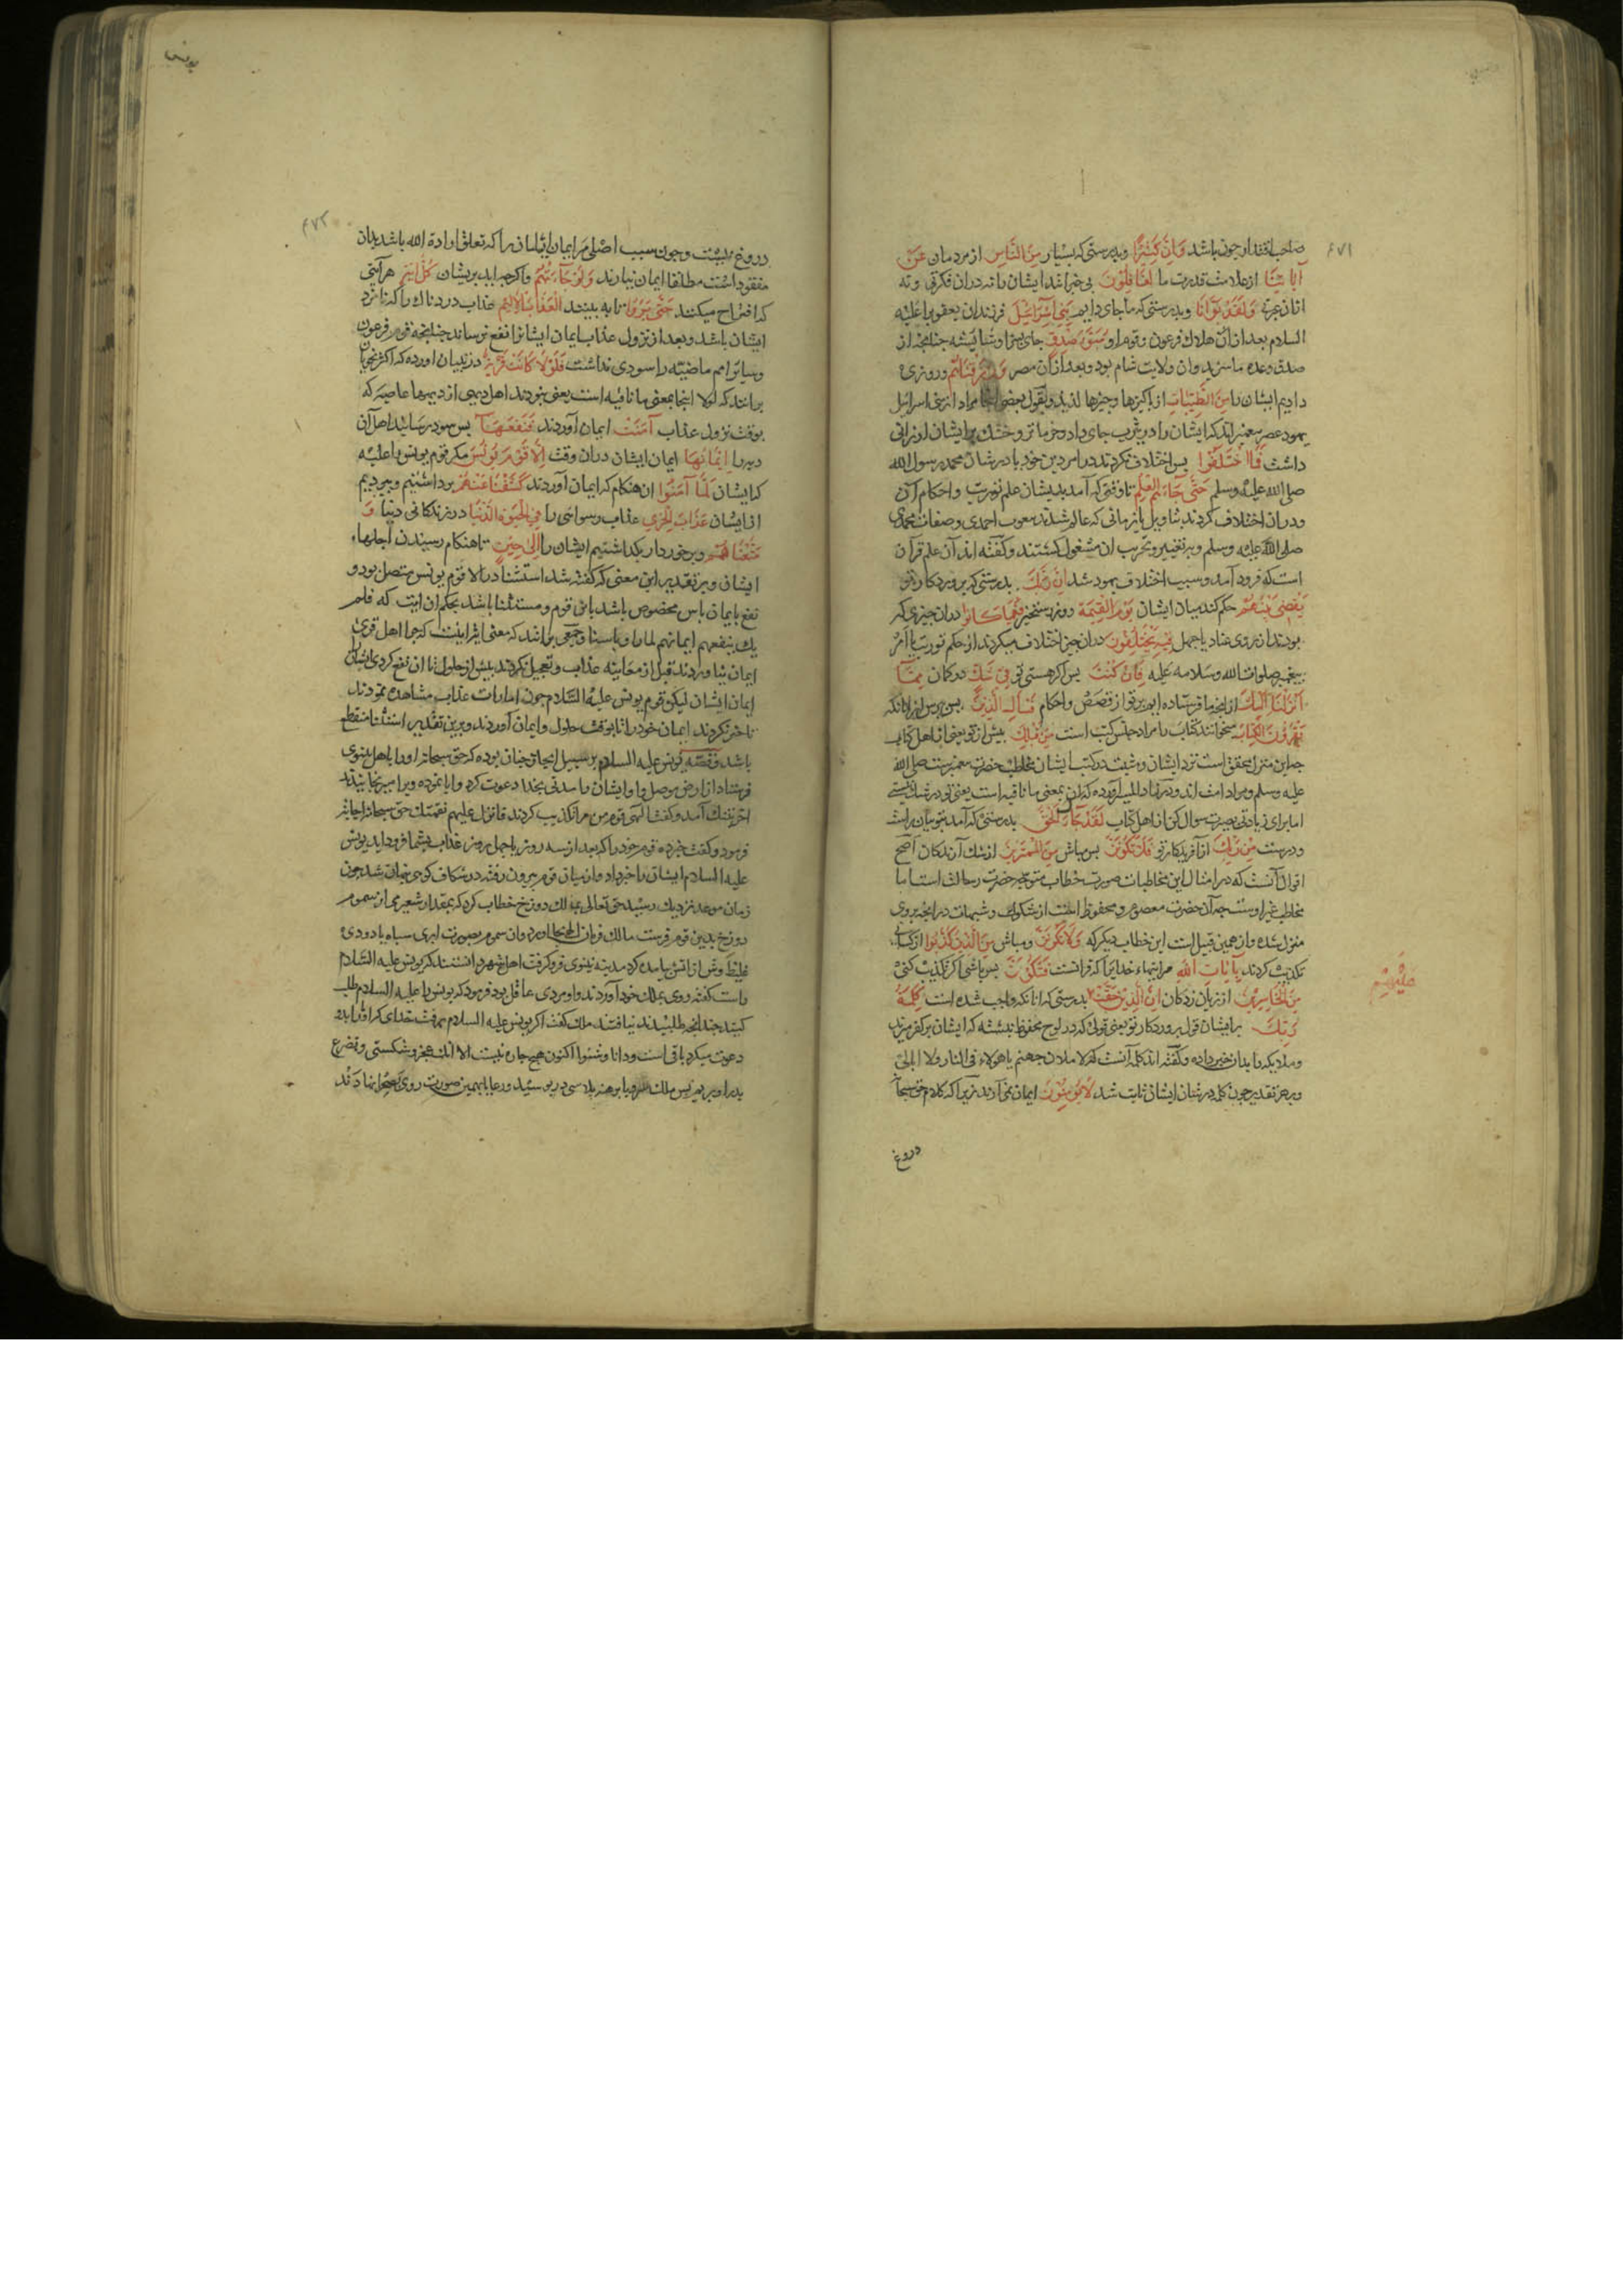 صاحب اقتدار چون باشد وَاِنَّ كَثِيرًا وبدرستی که بسیار مِنَ النَّاسِ از مردمان عَنْ
آيَاتِنَا از علامت قدرت ما لَغَافِلُونَ بی خبرانند ایشان را نه دران فکرتی و نه
ازان عبرتی وَلَقَدْ بَوَّأْنَا وبدرستی که ما جای دادیم بَنِي اِسْرَآئِيلَ فرزندان یعقوب را علیه
السلام بعد ازان هلاک فرعون و قوم او مُبَوَّأَ صِدْقٍ جای سزا و شایسته چنانچه از
صدق وعده ما سزید وان ولایت شام بود و بعد ازان مصر وَرَزَقْنَاهُمْ و روزی
دادیم ایشان را مِنَ الطَّيِّبَاتِ از پاکیزها و چیزها لذیذ و بقول بعضی اینجا مراد از بنی اسرائیل
یهود عصر پیغمبر اند که ایشان را در یثرب جای داد و خرما تر و خشک برایشان ارزانی
داشت فَمَا اخْتَلَفُوا پس اختلاف نکردند در امر دین خود یا در شان محمد رسول الله
صلی الله علیه وسلم حَتَّى جَآءَهُمُ الْعِلْمُ تا وقتی که آمد بدیشان علم توریت و احکام آن
ودران اختلاف کردند بتاویل یا زمانی که عالم شدند بنعوت احمدی و صفات محمدی
صلی الله علیه وسلم و بر تغییر و تحریب ان مشغول گشتند و گفته اند آن علم قرآن
است که فرود آمد و سبب اختلاف یهود شد اِنَّ رَبَّكَ بدرستی که پروردکار تو
يَقْضِي بَيْنَهُمْ حکم کند بیان ایشان يَوْمَ الْقِيَمَةِ روز رستخیز فِيمَا كَانُوا دران چیزی که
بودند از روی عناد یا جهل فِيهِ يَخْتَلِفُونَ دران چیز اختلاف میکردند از حکم توریت یا امر
پیغمبر صلوات الله وسلامه علیه فَاِنْ كُنْتَ پس اکر هستی تو فِي شَكٍّ در کمان مِمَّآ
اَنْزَلْنَا اِلَيْكَ از انچه ما فرستاده ایم بر تو از قصص و احکام فَسْأَلِ الَّذِينَ پس بپرس از انانکه
يَقْرَؤُنَ الْكِتَابَ میخوانند کتاب را مراد جنس کتب است مِنْ قَبْلِكَ پیش از تو یعنی از اهل کتاب
چه این منزل محقق است نزد ایشان و مثبت در کتب ایشان مخاطب حضرت پیغمبرست صلی الله
علیه وسلم و مراد امت اند و در زاد المسیر آورده که ان بمعنی ما نافیه است یعنی تو در شک نیستی
اما برای زیادتی بصیرت سوال کن از اهل کتاب لَقَدْ جَآءَكَ الْحَقُّ بدرستی که آمد بتو بیان راست
ودرست مِنْ رَبِّكَ از آفریدکار تو فَلَا تَكُونَنَّ پس مباش مِنَ الْمُمْتَرِينَ از شک آرندکان اصح
اقوال آنست که در امثال این مخاطبات صورت خطاب متوجه حضرت رسالت است اما
مخاطب غیر اوست چه آن حضرت معصوم و محفوظ است از شکوک و شبهات در انچه بر وی
منزل شده و از همین قبیل است این خطاب دیکر که وَلَا تَكُونَنَّ و مباش مِنَ الَّذِينَ كَذَّبُوا از کسانی
تکذیب کردند بِآيَاتِ اللهِ مر ایتهاء خدایرا که قرانست فَتَكُونَ پس باشی اکر تکذیب کنی
مِنَ الْخَاسِرِينَ از زیان زدکان اِنَّ الَّذِينَ حَقَّتْ بدرستی که انانکه واجب شده است كَلِمَةُ
رَبِّكَ بر ایشان قول پروردکار تو یعنی قولی که در لوح محفوظ نبشته که ایشان بر کفر میرند
و ملایکه را بدان خبر داده و گفته اند کلمه آنست که لاملان جهنم یا هولاء فی النار ولا ابالی
و بر هر تقدیر چون کلمه در شان ایشان ثابت شد لَا يُؤْمِنُونَ ایمان نمی آورند زیرا که کلام حق سبحانه
دروغ
عَلَيْهِمْ
۶۷۱
یونس
۶۷۲
دروغ نیست و چون سبب اصلی مر ایمان ایشان را که تعلق ارادة الله باشد بدان
مفقود است مطلقا ایمان نیارند وَلَوْ جَآءَتْهُمْ و اکر چه اید بریشان كُلُّ اٰيَةٍ هر آیتی
که اقتراح میکنند حَتَّى يَرَوُا تا به بینند الْعَذَابَ الْاَلِيمَ عذاب دردناک را که نامزد
ایشان باشد و بعد از نزول عذاب ایمان ایشانرا نفع نرساند چنانچه قوم فرعون
و سایر امم ماضیه را سودی نداشت فَلَوْلَا كَانَتْ قَرْيَةٌ در تبیان اورده که اکثر نحویان
برانند که لولا اینجا بمعنی ما نافیه است یعنی نبودند اهل دیهی از دیهها عاصیه که
بوقت نزول عذاب آمَنَتْ ایمان آوردند فَنَفَعَهَآ پس سود رسانید اهل آن
دیه را اِيْمَانُهَا ایمان ایشان دران وقت اِلَّا قَوْمَ يُونُسَ مکر قوم یونس را علیه
که ایشان لَمَّا آمَنُوا ان هنکام که ایمان آوردند كَشَفْنَا عَنْهُمْ برداشتیم و ببردیم
از ایشان عَذَابَ الْخِزْيِ عذاب رسوائی را فِي الْحَيٰوةِ الدُّنْيَا در زندکانی دنیا وَ
مَتَّعْنَاهُمْ و برخوردار بکذاشتیم ایشان را اِلٰى حِينٍ تا هنکام رسیدن اجلهاء
ایشان و بر تقدیر این معنی که گفته شد استثنا در الا قوم یونس متصل بود و
نفع بایمان باس مخصوص باشد باین قوم و مستثنا باشد بحکم ان ایت که فلم
یک ینفعهم ایمانهم لما راو باسنا و جمعی برانند که معنی ایت اینست که چرا اهل قری
ایمان نیاوردند قبل از معاینه عذاب و تعجیل نکردند پیش از حلول تا ان نفع کردی ایشانرا
ایمان ایشان لیکن قوم یونس علیه السلام چون امارات عذاب مشاهده نمودند
تاخیر نکردند ایمان خود را تا بوقت حلول و ایمان آوردند و برین تقدیر استثنا منقطع
باشد و قصه یونس علیه السلام بر سبیل ایجاز چنان بوده که حق سبحانه او را باهل نینوی
فرستاد از ارض موصل و او ایشان را مدتی بخدا دعوت کرد و ابا نموده ویرا میرنجانیدند
اخر بتنک آمد و گفت الهی قوم من مرا تکذیب کردند فانزل علیهم نقمتک حق سبحانه اجابت
فرمود و گفت خبر ده قوم خود را که بعد از سه روز یا چهل روز عذاب بشما فرود اید یونس
علیه السلام ایشان را خبر داد و از میان قوم بیرون رفته در شکاف کوهی پنهان شد چون
زمان موعد نزدیک رسید حق تعالی بمالک دوزخ خطاب کرد که بمقدار شعیری از سموم
دوزخ بدین قوم فرست مالک فرمان الهی بجا اورد وان سموم بصورت ابری سیاه با دودی
غلیظ و شرار آتش بیامده کرد مدینه نینوی فرو گرفت اهل شهر دانستند که یونس علیه السلام
راست کفته روی بملک خود آوردند و او مردی عاقل بود فرمود که یونس را علیه السلام طلب
کنید چندانچه طلبیدند نیافتند ملک گفت اکر یونس علیه السلام برفت خدای که او ما را بدو
دعوت میکرد باقی است و دانا و شنوا اکنون هیچ چاره نیست الا انک عجز و شکستی و تضرع
بدرکاه او بریم پس ملک سر و پا برهنه پلاسی در پوشید و رعایا بهمین صورت روی بصحرا نهادند